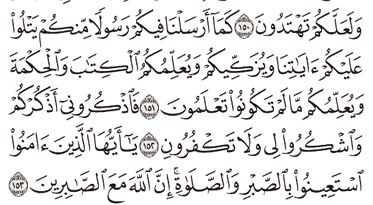 وَلَعَلَّكُمْ تَهْتَدُونَ ١٥٠ كَمَآ أَرْسَلْنَا فِيكُمْ رَسُولًا مِّنكُمْ يَتْلُوا۟
عَلَيْكُمْ ءَايَٰتِنَا وَيُزَكِّيكُمْ وَيُعَلِّمُكُمُ ٱلْكِتَٰبَ وَٱلْحِكْمَةَ
وَيُعَلِّمُكُم مَّا لَمْ تَكُونُوا۟ تَعْلَمُونَ ١٥١ فَٱذْكُرُونِىٓ أَذْكُرْكُمْ
وَٱشْكُرُوا۟ لِى وَلَا تَكْفُرُونِ ١٥٢ يَٰٓأَيُّهَا ٱلَّذِينَ ءَامَنُوا۟
ٱسْتَعِينُوا۟ بِٱلصَّبْرِ وَٱلصَّلَوٰةِ ۚ إِنَّ ٱللَّهَ مَعَ ٱلصَّٰبِرِينَ ١٥٣